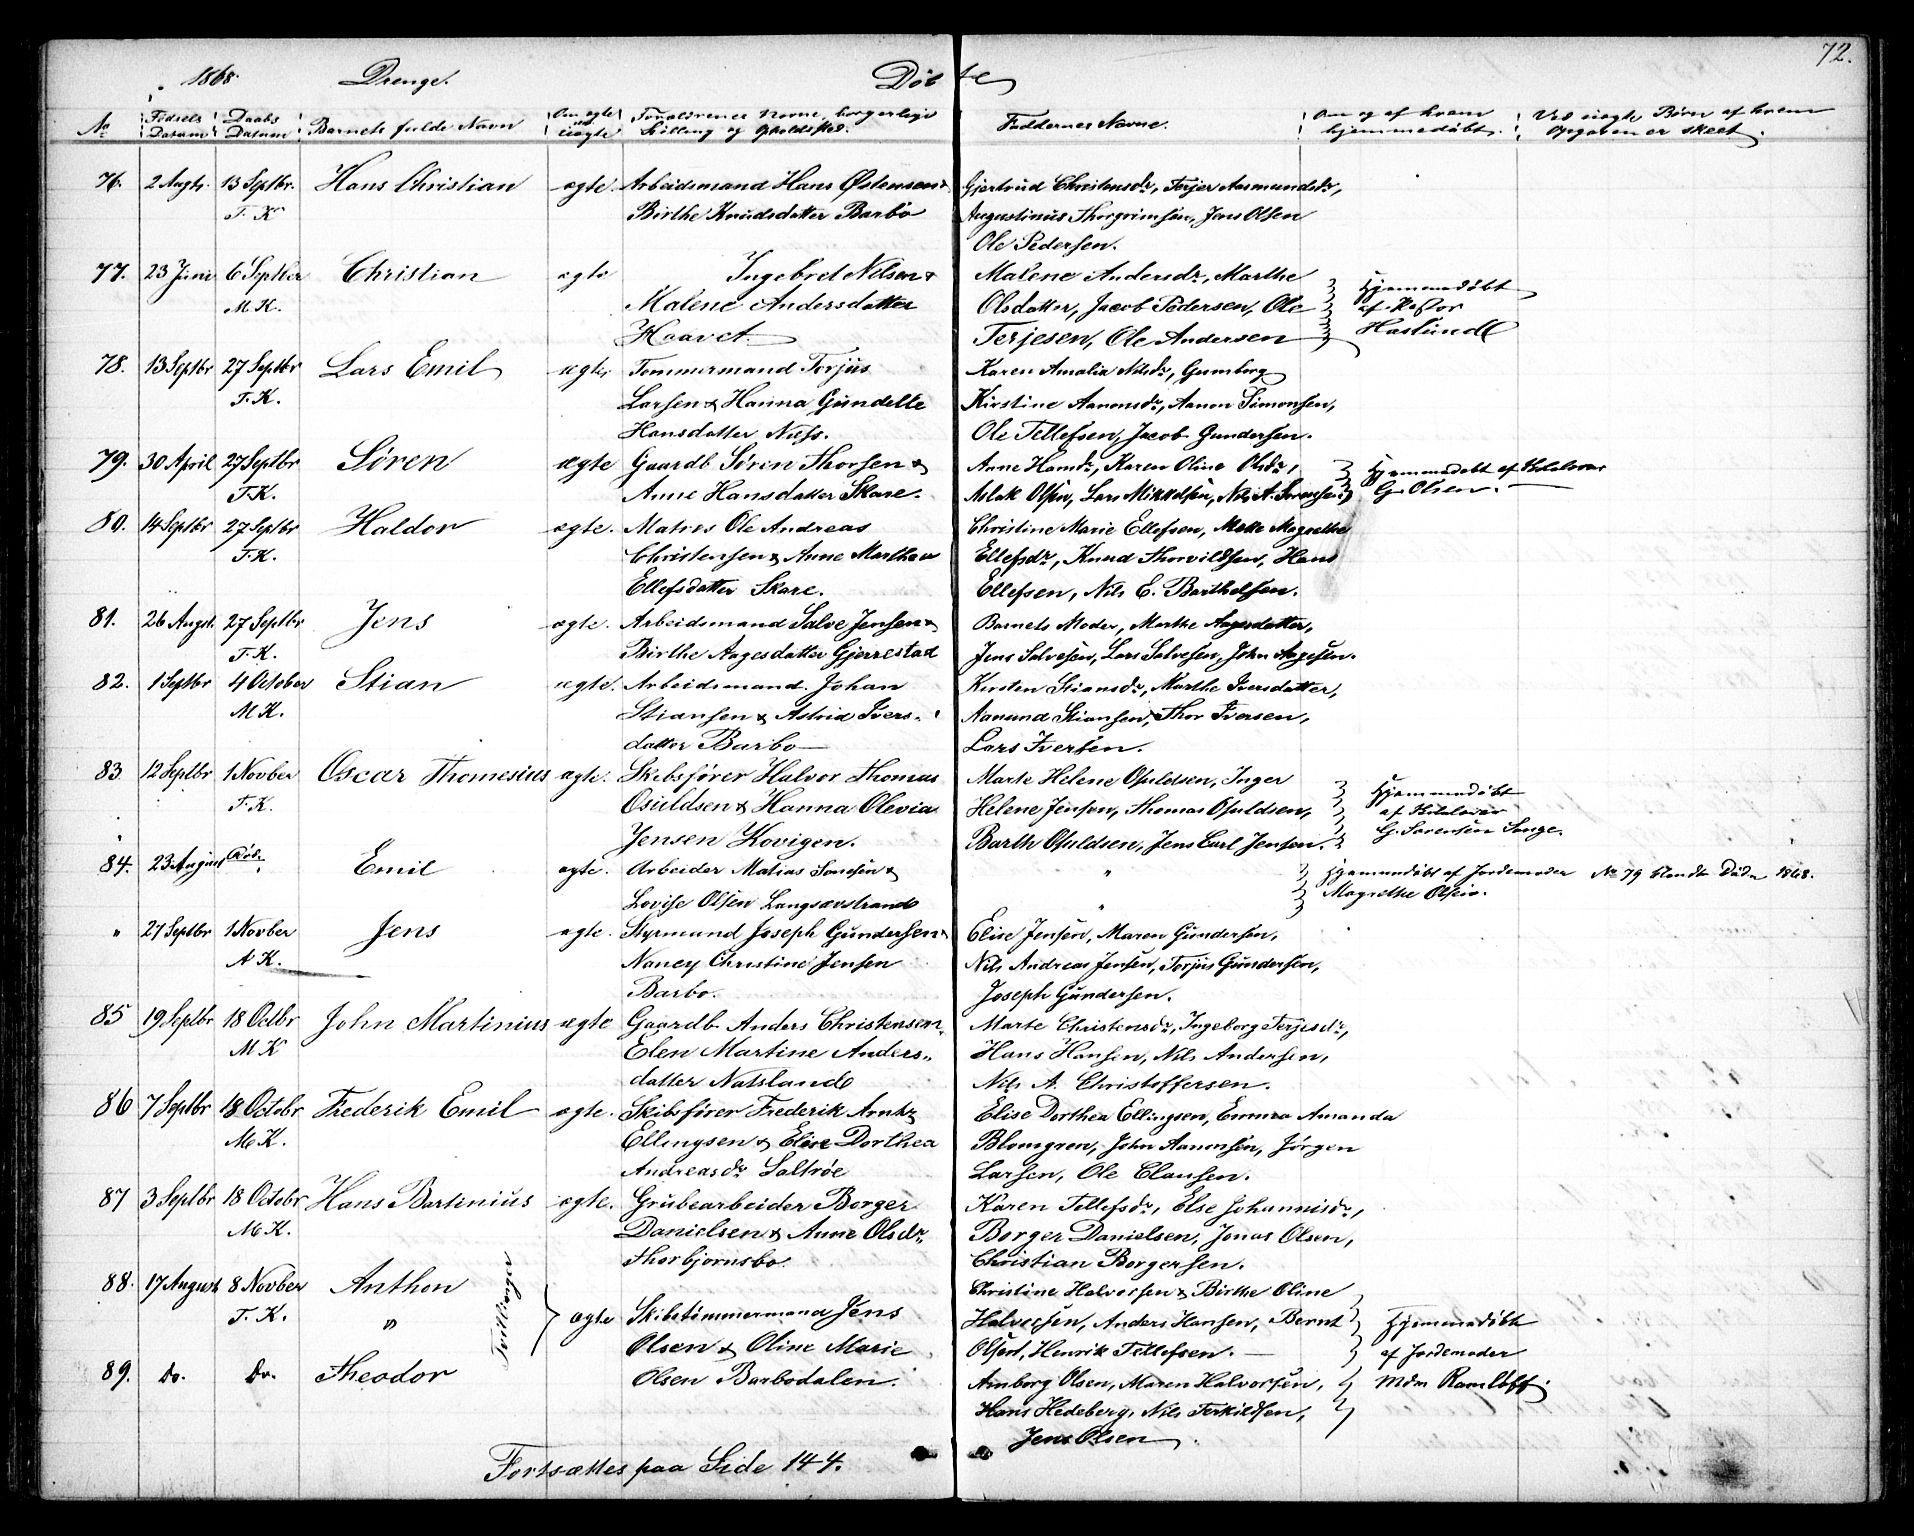 72.
1868. Drenge. Døbte
No Fødsels Datum Daabs Datum Barnets fulde Navn Om ægte uægte Forældrenes Navne, borgerlige Stilling og Opholdsted. Faddernes Navne. Om og af hvem hjemmedøbt. Ved uægte Børn af hvem Opgaven er skeet.
76. 2 Augt. 13 Septbr. Hans Christian ægte. Arbeidsmand Hans Østensen & Gjertrud Christensdr, Terjer Aasmundsdr,
T. K Birthe Knudsdatter Barbo Augustinus Thorgrimsen, Jens Olsen
Ole Pedersen.
77. 23 Juni 6 Septber Christian ægte Ingebret Nilsen & Malene Andersdr, Marthe
M. K. Malene Andersdatter Olsdatter, Jacob Pedersen, Ole Hjemmedøbt
Haavet. Terjesen, Ole Andersen af Pastor Haslund
78. 13 Septbr 27 Septbr Lars Emil ægte Tømmermand Torjus Karen Amalia Nilsdr, Gunborg
T. K. Larsen & Hanna Gundelle Kirstine Aanonsdr, Aanon Simonsen,
Hansdatter Næss. Ole Tellefsen, Jacob Gundersen.
79. 30 April 27 Septbr Søren ægte Gaardb. Søren Thorsen & Anne Hansdr, Karen Oline Olsdr, Hjemmedøbt af Kirkelærer
T. K. Anne Hansdatter Skare. Aslak Olsen, Lars Mikkelsen, Nils A. Sørensen G. Olsen.
80. 14 Septbr 27 Septbr Haldor ægte. Matros Ole Andreas Christine Marie Ellefsen, Mette Magrethe
T. K. Christensen & Anne Marthea Ellefsdr, Knud Thorvildsen, Hans
Ellefsdatter Skare. Ellefsen, Nils E. Barthelsen.
81. 26 Augst. 27 Septbr Jens ægte. Arbeidsmand Salve Jensen & Barnets Moder, Marthe Aagesdatter,
T. K. Birthe Aagesdatter Gjerrestad Jens Salvesen, Lars Salvesen, John Aagesen.
82. 1 Septbr 4 October Stian ægte. Arbeidsmand. Johan Kirsten Stiansdr, Marthe Iversdatter,
M. K. Stiansen & Astrid Ivers- Aanund Stiansen, Thor Iversen,
datter Barbo Lars Iversen.
83 12 Septbr 1 Novber Oscar Thomesius ægte. Skibsfører Halvor Thomas Marte Helene Osuldsen, Inger
T. K. Osuldsen & Hanna Olevia Helene Jensen, Thomas Osuldsen, Hjemmedøbt
Jensen Kovigen. Barth Osuldsen, Jens Carl Jensen. G. Sørensen Songe.
84. 23 August Død. Emil ægte. Arbeider Matias Sonesen & " Hjemmedøbt af Jordemoder No 79 blandt Døde 1868.
Lovise Olsen Langsævstrand " Magrethe Olsen.
" 27 Septbr 1 Novber Jens ægte. Styrmand Joseph Gundersen & Elise Jensen, Maren Gundersen,
A K. Nancy Christine Jensen Nils Andreas Jensen, Torjus Gundersen,
Barbo. Joseph Gundersen.
85 19 Septbr 18 Octbr John Martinius ægte Gaardb. Anders Christensen Marte Christensdr, Ingeborg Terjesdr,
M K Elen Martine Anders- Hans Hansen, Nils Andersen,
datter Natsland Nils A. Christoffersen.
86 7 Septbr 18 Octobr Frederik Emil ægte. Skibsfører Frederik Arntz Elise Dorthea Ellingsen, Emma Amanda
M. K. Ellingsen & Elise Dorthea Blomgren, John Aanonsen, Jørgen
Andreasdr Saltrøe Larsen, Ole Clausen.
87 3 Septbr 18 Octobr Hans Bertinius ægte. Grubearbeider Borger Karen Tellefsdr, Else Johannisdr,
M. K. Danielsen & Anne Olsdr. Borger Danielsen, Jonas Olsen,
Thorbjørnsbo. Christian Borgersen.
88. 17 August 8 Novber Anthon Christine Halvorsen & Birthe Oline
T. K. " Tvillinger ægte Skibstømmermand Jens Halvorsen, Anders Hansen, Bernt Hjemmedøbt
Olsen & Oline Marie Olsen, Henrik Tellefsen. af Jordemoder
89. Do. Do. Theodor Olsen Barbodalen. Amborg Olsen, Maren Halvorsen, Mdm Ramløff.
Hans Hedeberg, Nils Terkildsen,
Jens Olsen
Fortsættes paa Side 144.